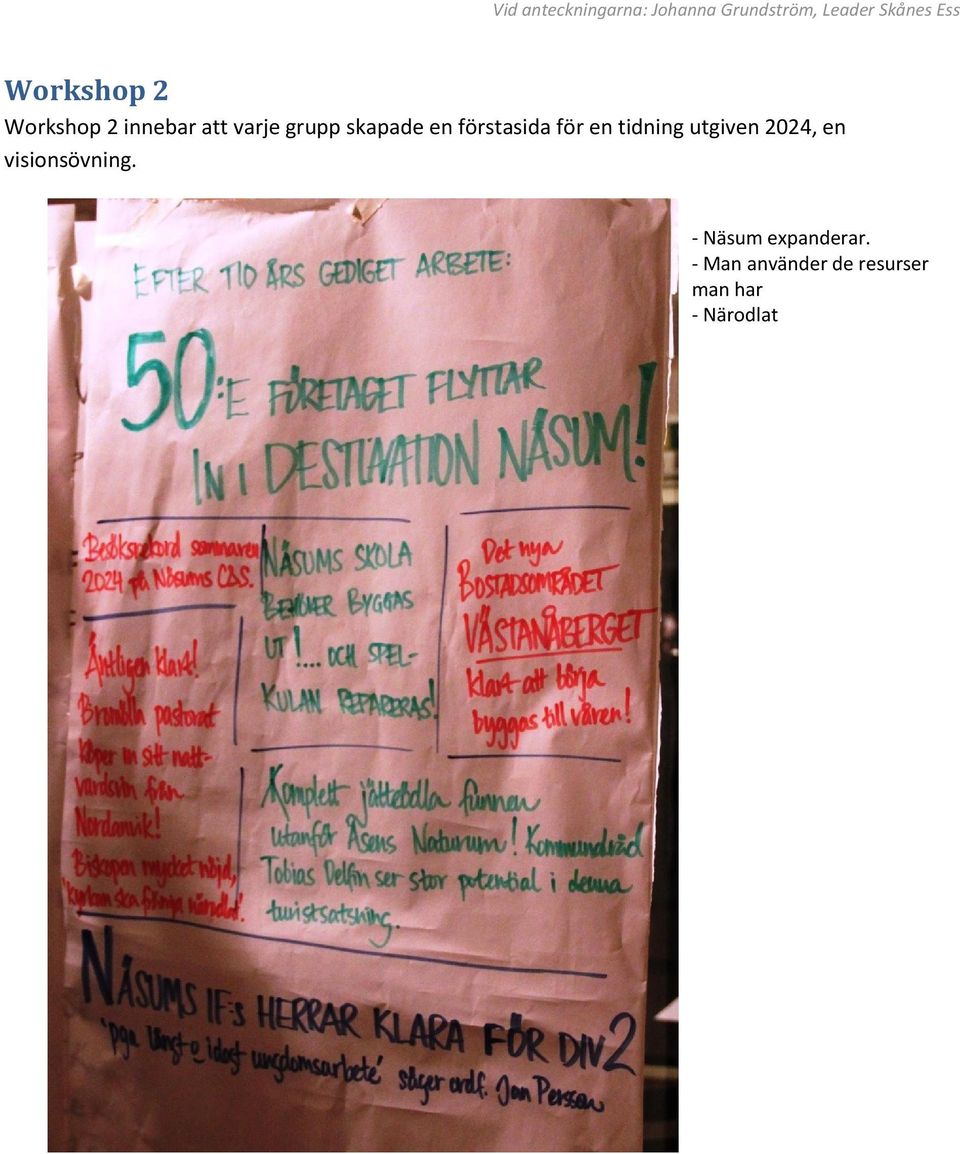 Vid anteckningarna: Johanna Grundström, Leader Skånes Ess
Workshop 2
Workshop 2 innebar att varje grupp skapade en förstasida för en tidning utgiven 2024, en
visionsövning.
- Näsum expanderar.
- Man använder de resurser
man har
- Närodlat
EFTER TIO ÅRS GEDIGET ARBETE:
50:E FÖRETAGET FLYTTAR
IN I DESTINATION NÄSUM!
Besöksrekord sommaren
2024 på Näsums C&S.
Äntligen klart!
Bromölla pastorat
köper in sitt natt-
vardsvin från
Nordanvik!
Biskopen mycket nöjd,
NÄSUMS SKOLA
BEHÖVER BYGGAS
UT!... OCH SPEL-
KULAN REPARERAS!
Det nya
BOSTADSOMRÅDET
VÄSTANÅBERGET
klart att börja
byggas till våren!
Komplett jätteödla funnen
utanför Åsens Naturum! Kommunalråd
Tobias Delfin ser stor potential i denna
turistsatsning.
NÄSUMS IF:s HERRAR KLARA FÖR DIV 2
'pga långt e idogt ungdomsarbete' säger ordf. Jan Persson